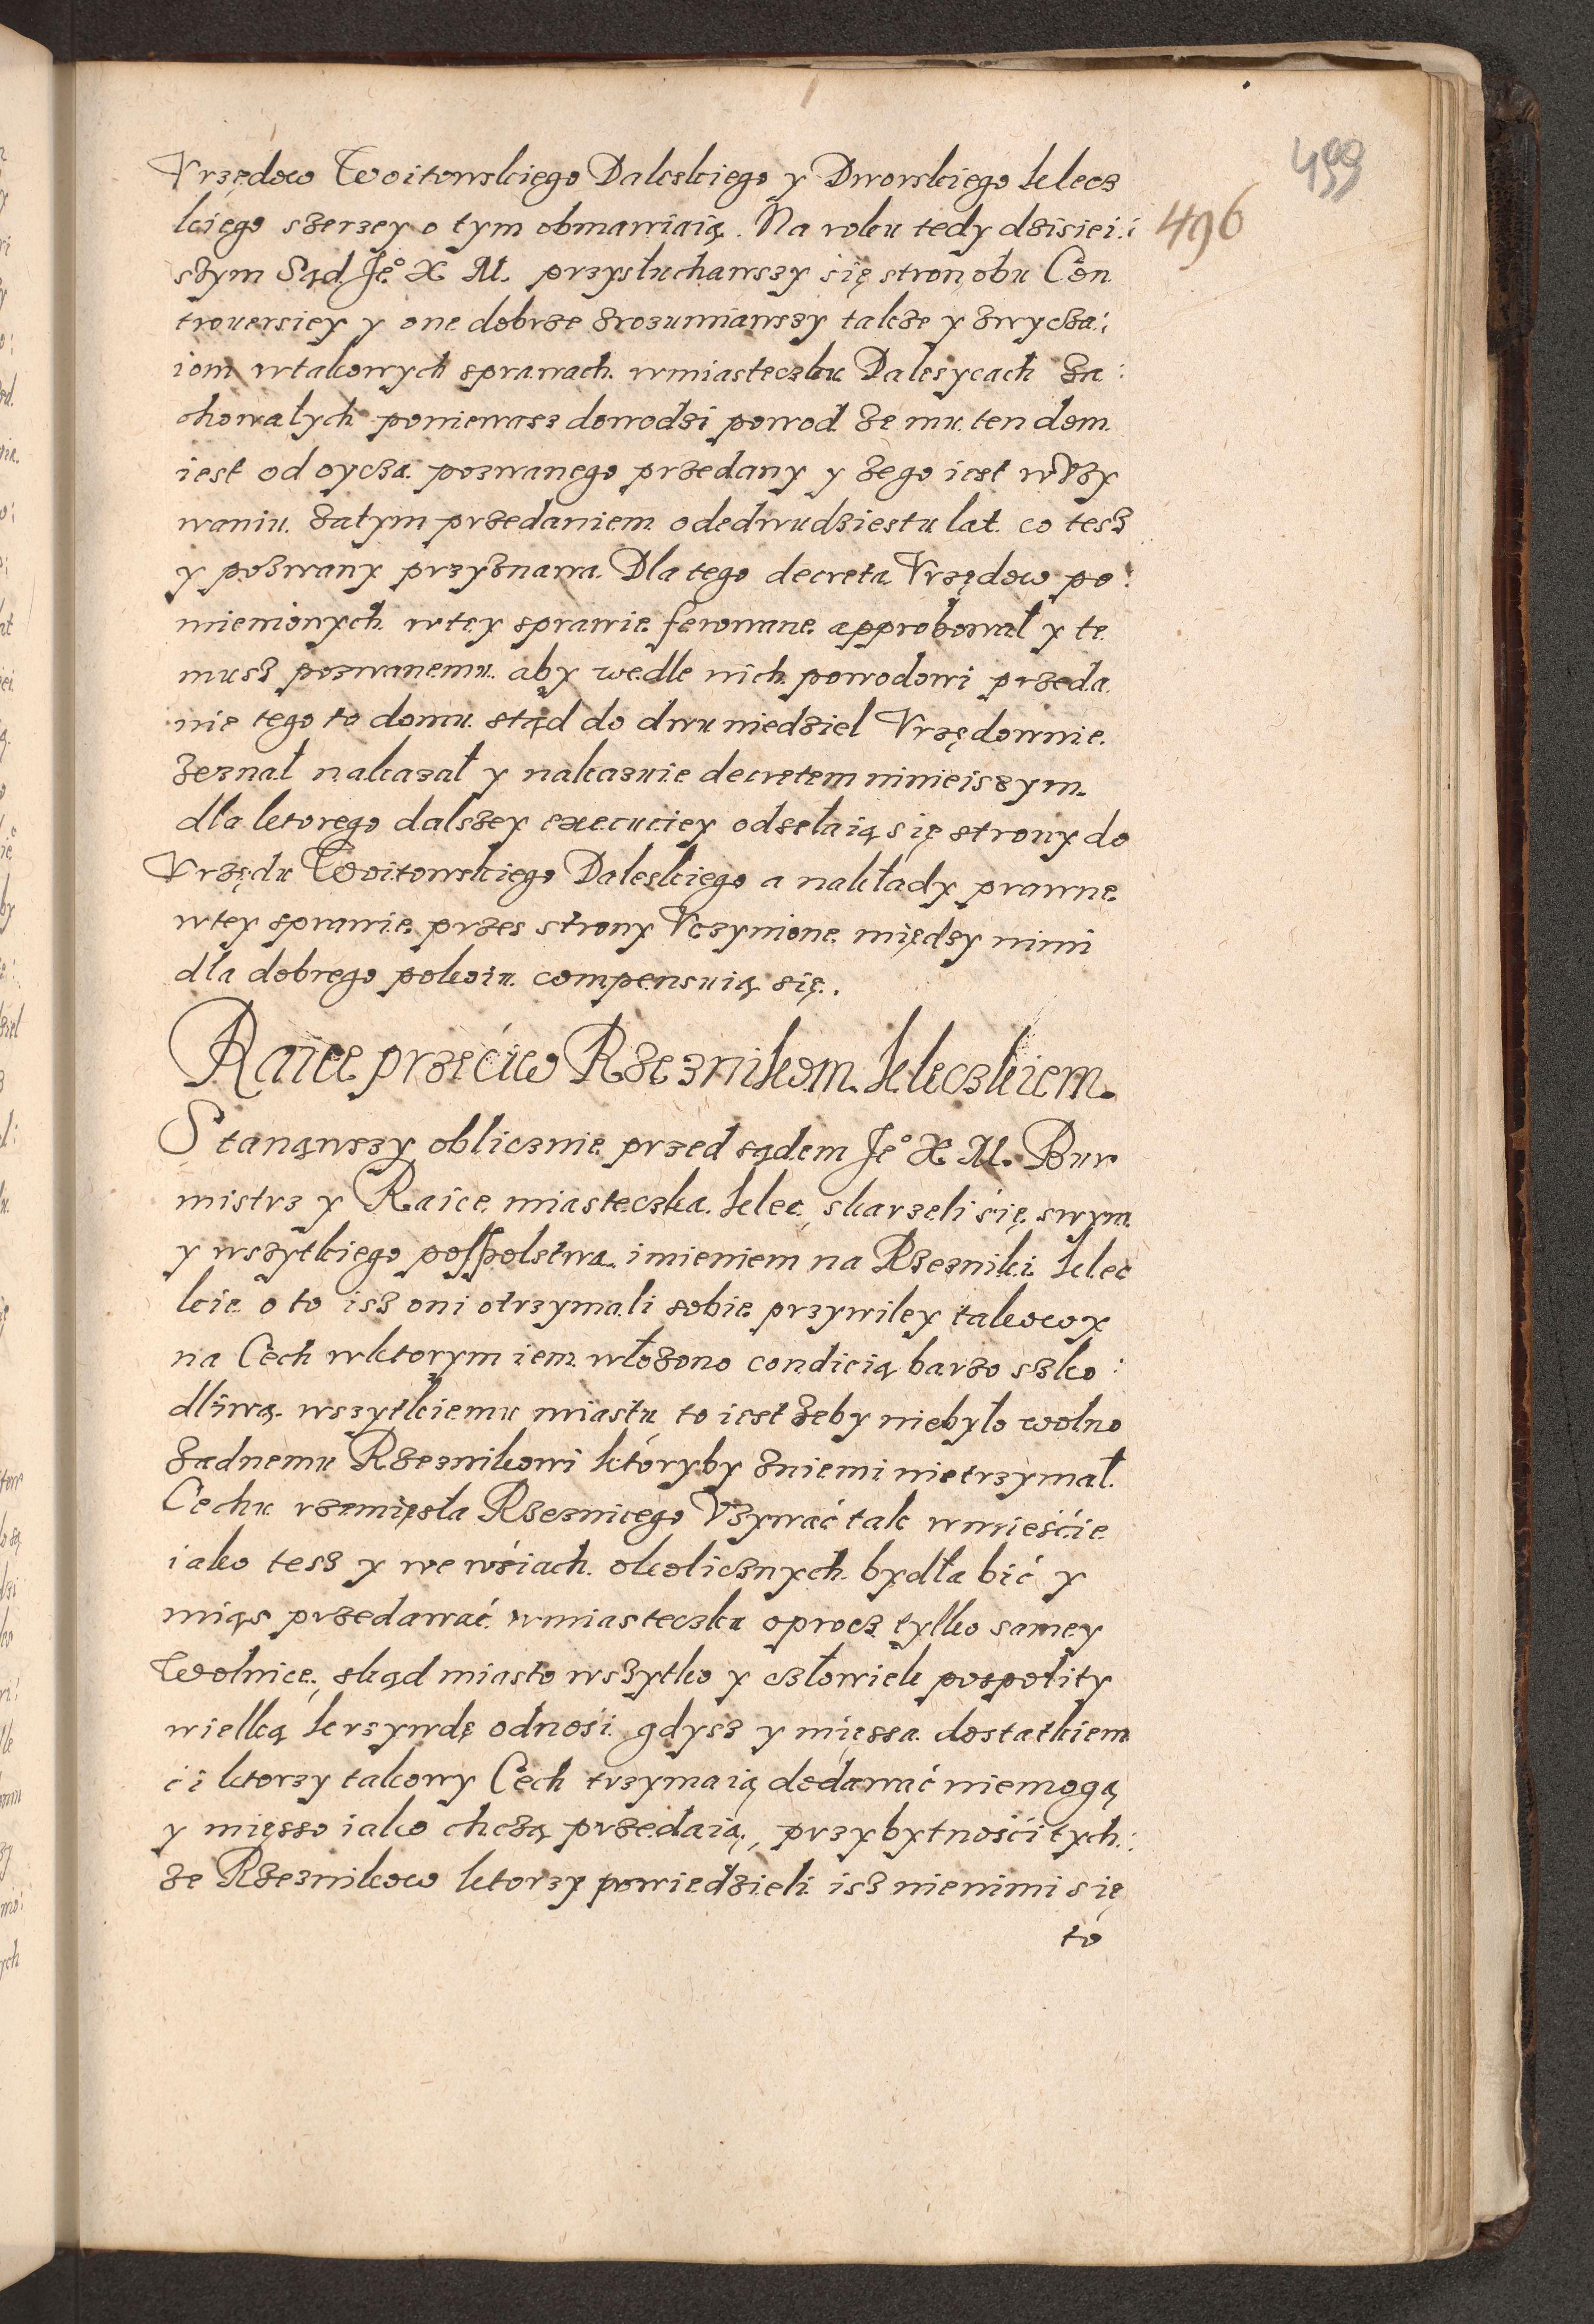 499
496
Vrzędow Woitowskiego Daleskiego y Dworskiego kiecz
kiego szerzey o tym obmawiaią. Na roku tedy dzisiei:
szym Sąd Je° X M. przysłuchawszy się stron obu Con
trouersiey y one dobrze zrozumiawszy także y zwycza:
iom wtakowych sprawach wmiasteczku Dalesycach za:
chowałych poniewasz dowodzi powod że mu ten dom
iest od oycza pozwanego przedany y żego iest wVży
waniu zatym przedaniem odedwudziestu lat co tesz
y pozwany przyznawa. Dla tego decreta Vrzędow po:
mienionych wtey sprawie ferowane approbował y te
musz pozwanemu aby wedle nich powodowi przeda
nie tego to domu stąd do dwu niedziel Vrzędownie
zeznał nakazał y nakazuie decretem ninieiszym.
dla ktorego dalszey execuciey odsełaią się strony do
Vrzędu Woitowskiego Daleskiego a nakłady prawne
wtey sprawie przes strony Vczynione między nimi
dla dobrego pokoiu compensuią się.
Raice przećiw Rzeznikom kieczkiem.
Stanąwszy oblicznie przed sądem Je° X M. Bur
mistrz y Raice miasteczka kiec skarzeli się swym
y wszytkiego posspolstwa imieniem na Rzezniki kiec
kie o to isz oni otrzymali sobie przywiley takowy
na Cech wktorym iem włożono condicią barzo szko:
dliwą wszytkiemu miastu to iest żeby niebyło wolno
żadnemu Rzeznikowi któryby zniemi nietrzymał
Cechu rzemięsła Rzeznicego Vżywać tak wmieśćie
iako tesz y we wśiach okolicznych bydła bić y
mięs przedawać wmiasteczku oprocz tylko samey
Wolnice, skąd miasto wszytko y człowiek pospolity
wielką krzywdę odnosi gdysz y mięssa dostatkiem
ći ktorzy takowy Cech trzymaią dodawać niemogą
y mięsso iako chczą przedaią, przybytnośći tych:
że Rzeznikow ktorzy powiedzieli isz nienimi się
to